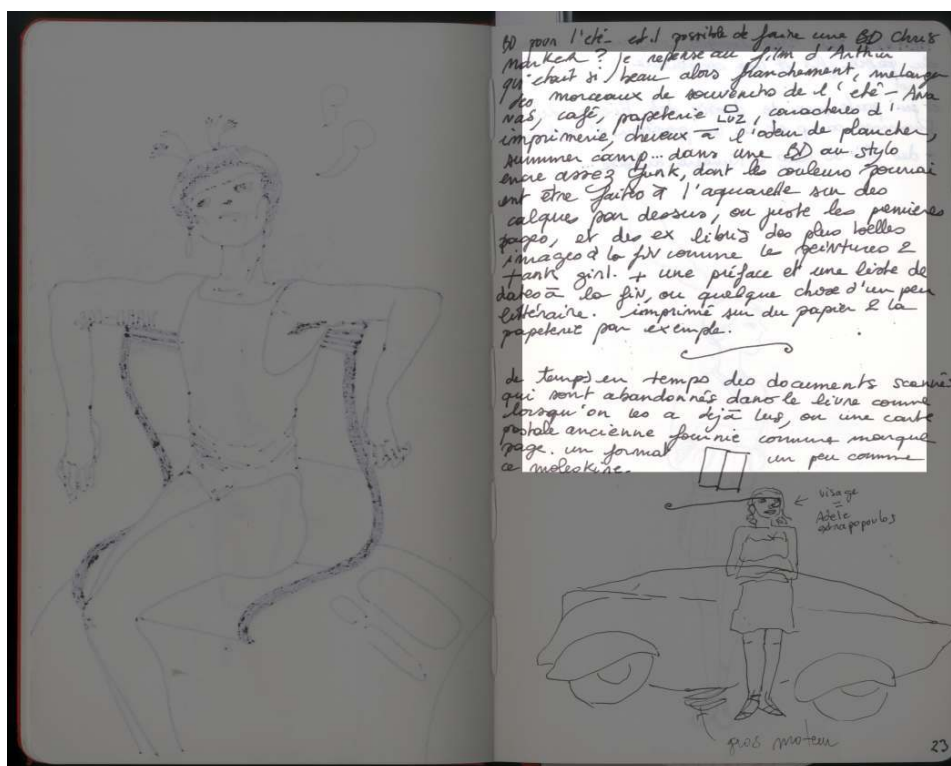 BD pour l'eté - est il possible de faire une BD Chris
Marker ? je repense au film d'Arthur
qu'était si beau alors franchement, melanger
des morceaux de souvenirs de l'eté - Ana
nas, café, papeterie LUZ, caractères d'
imprimerie, cheveux à l'odeur de plancher,
summer camp... dans une BD au stylo
encre assez funk, dont les couleurs pourrai
ent être faites à l'aquarelle sur des
calques par dessus, ou juste les premières
pages, et des ex libris des plus belles
images à la fin comme les peintures 2
tank girl. + une préface et une liste de
dates à la fin, ou quelque chose d'un peu
littéraire. imprimé sur du papier 2 la
papeterie par exemple.
de temps en temps des documents scannés
qui sont abandonnés dans le livre comme
lorsqu'on les a déjà lus, ou une carte
postale ancienne fournie comme marque
page. un format un peu comme
ce moleskine.
visage
=
Adèle
gros moteur
23